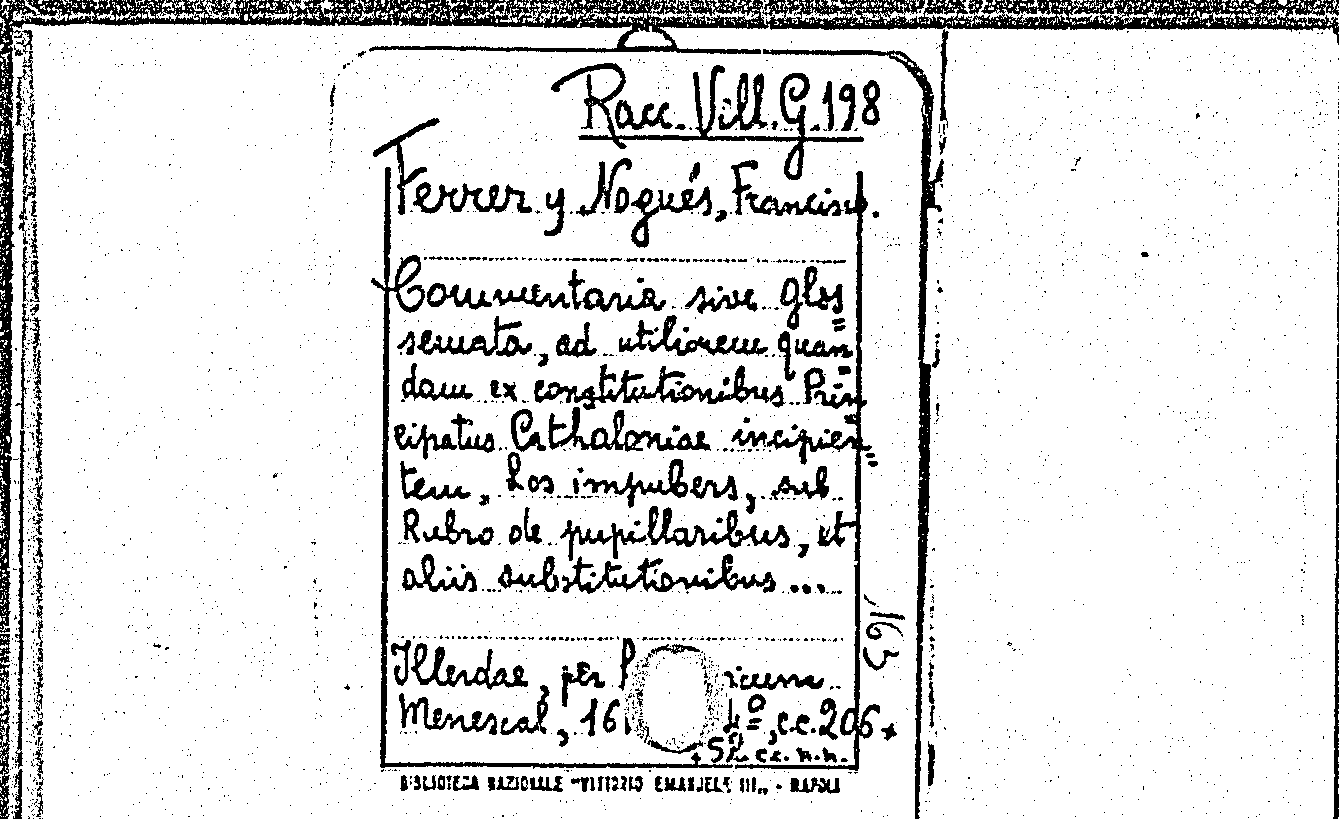 Racc. Vill. G. 198
Ferrer y Nogués, Francisco.
Commentaria sive glos=
semata, ad utiliorem quan=
dam ex constitutionibus Prin=
cipatus Cathaloniae incipien=
tem, Los impubers, sub
Rubro de pupillaribus, et
aliis substitutionibus...
163
Illerdae, per
Menescal, 16 4º, cc. 206 +
+ cc. n.n.
BIBLIOTECA NAZIONALE "VITTORIO EMANUELE III„ - NAPOLI